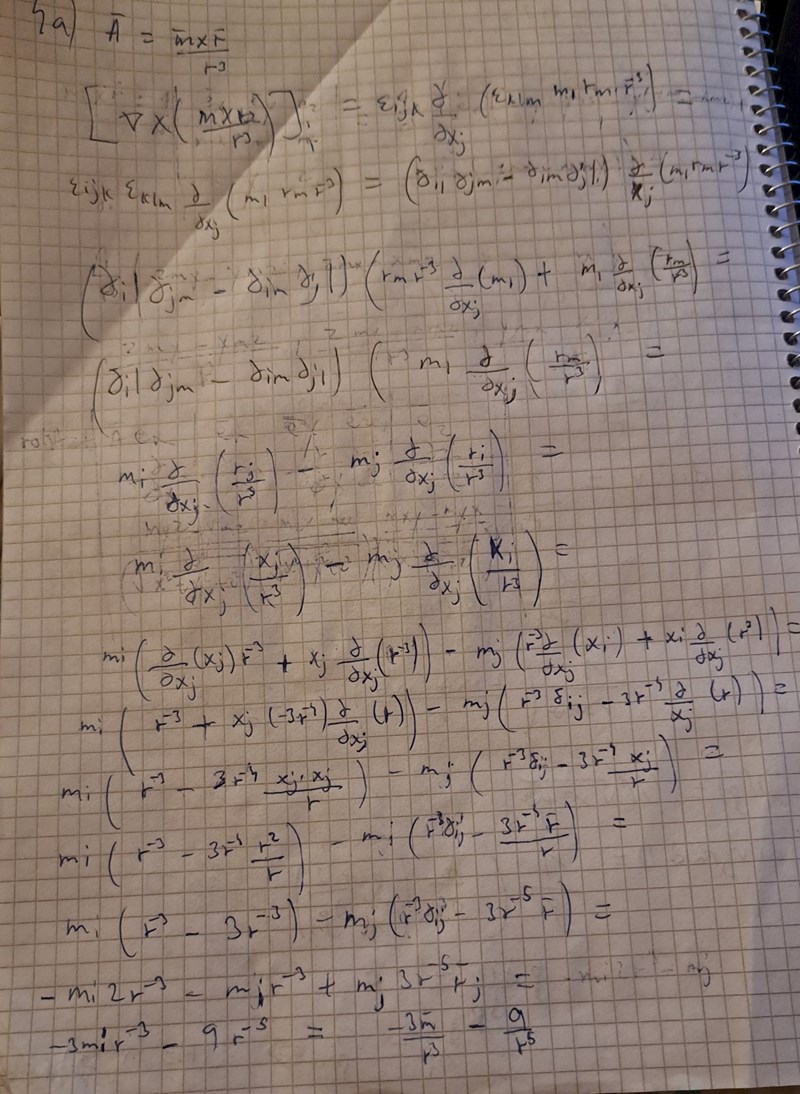 4a) A̅ = m̅×r̅/r³
[∇×(m̅×r̅/r³)]ᵢ = εijk ∂/∂xj (εklm ml rm r⁻³) =
εijk εklm ∂/∂xj (ml rm r⁻³) = (δil δjm - δim δjl) ∂/xj (ml rm r⁻³)
(δil δjm - δim δjl) (rm r⁻³ ∂/∂xj (ml) + ml ∂/∂xj (rm/r³) =
(δil δjm - δim δjl) ( ml ∂/∂xj (rm/r³) =
mi ∂/∂xj (rj/r³) - mj ∂/∂xj (ri/r³) =
mi ∂/∂xj (xj/r³) - mj ∂/∂xj (xi/r³) =
mi (∂/∂xj (xj) r⁻³ + xj ∂/∂xj (r⁻³)) - mj (r⁻³ ∂/∂xj (xi) + xi ∂/∂xj (r³)) =
mi (r⁻³ + xj (-3r⁻⁴) ∂/∂xj (r)) - mj (r⁻³ δij - 3r⁻⁴ ∂/xj (r)) =
mi (r⁻³ - 3r⁻⁴ xj·xj/r) - mj (r⁻³ δij - 3r⁻⁴ xj/r) =
mi (r⁻³ - 3r⁻⁴ r²/r) - mj (r⁻³ δij - 3r⁻⁴ r̅/r) =
mi (r⁻³ - 3r⁻³) - mj (r⁻³ δij - 3r⁻⁵ r̅) =
-mi 2r⁻³ - mj r⁻³ + mj 3r⁻⁵ r̅j =
-3mi r⁻³ - 9 r⁻⁵ = -3m̅/r³ - 9/r⁵